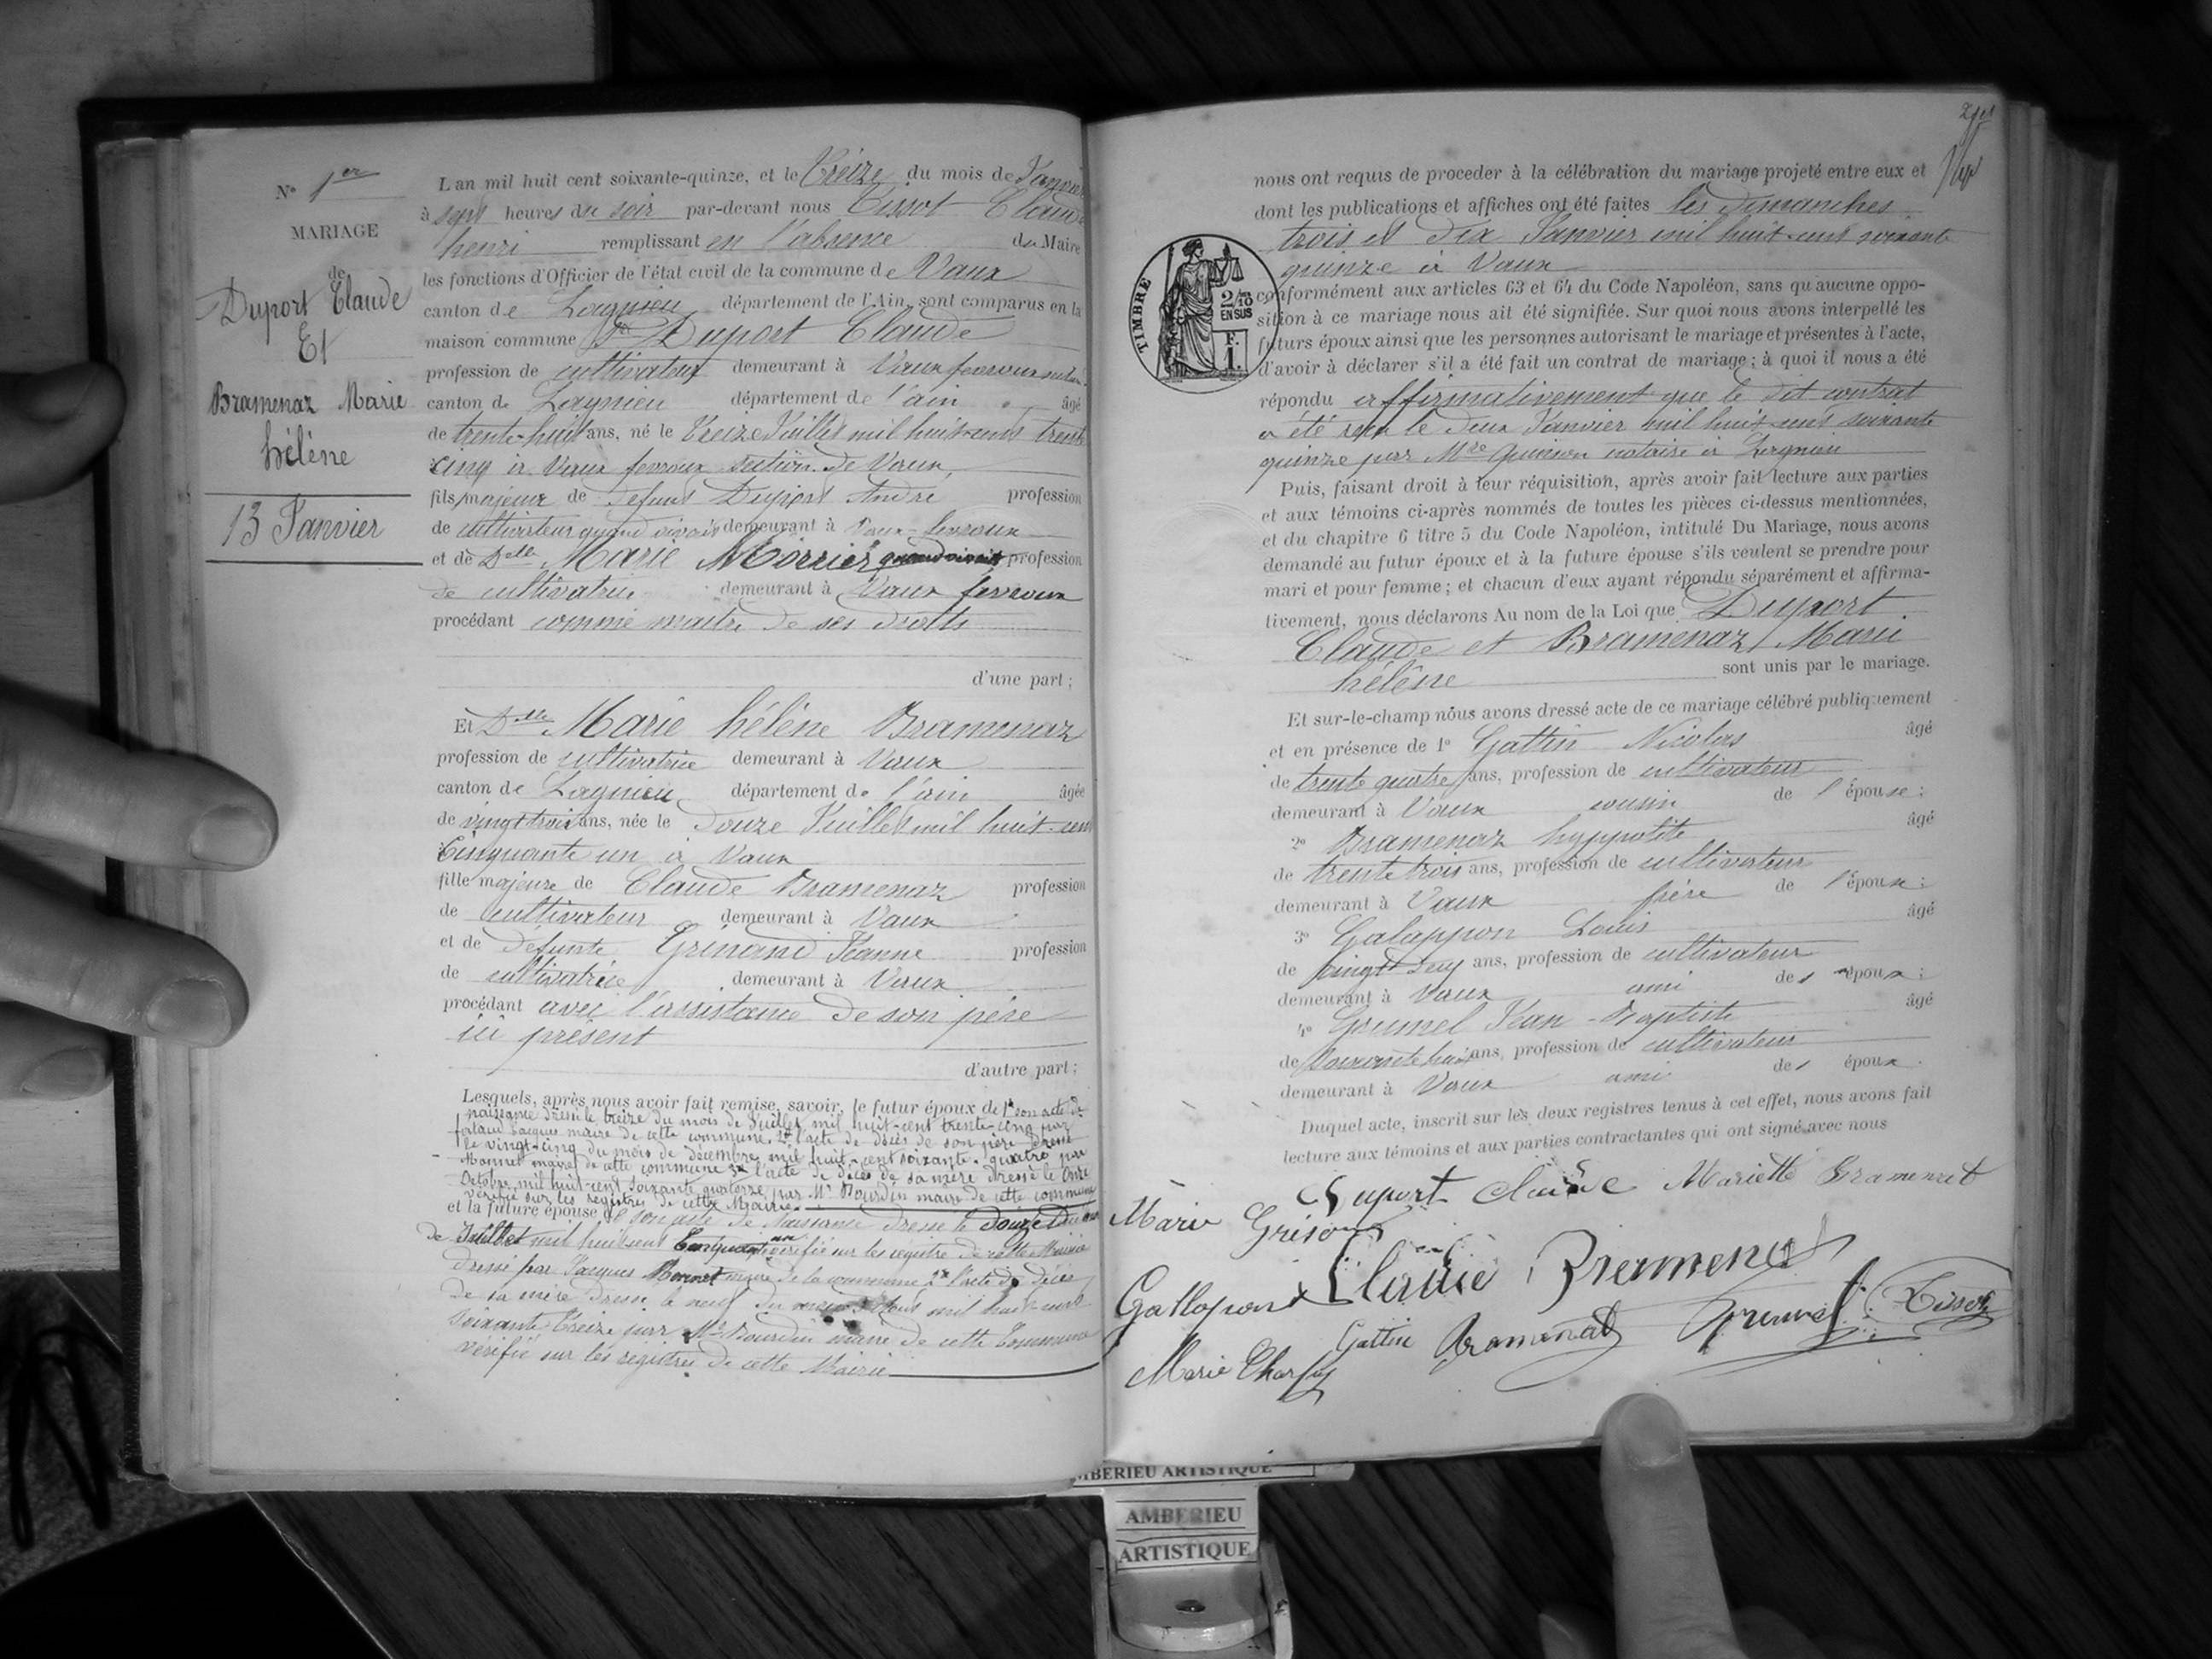 N° 1er
MARIAGE
de
Duport Claude
Et
Bramenaz Marie
hélène
13 Janvier
L'an mil huit cent soixante-quinze, et le Treize du mois de Janvier
à sept heures du soir par-devant nous Tissot Claude
henri remplissant en l'absence du Maire
les fonctions d'Officier de l'état civil de la commune de Vaux
canton de Lagnieu département de l'Ain, sont comparus en la
maison commune Sr Duport Claude
profession de cultivateur demeurant à Vaux fevroux
canton de Lagnieu département de l'ain âgé
de trente-huit ans, né le Treize Juillet mil huit-cent trente
cinq à Vaux fevroux section de Vaux
fils majeur de défunt Duport André profession
de cultivateur quand vivait demeurant à Vaux-fevroux
et de Delle Marie Morrier quand vivait profession
de cultivatrice demeurant à Vaux fevroux
procédant comme maître de ses droits
d'une part ;
Et Delle Marie hélène Bramenaz
profession de cultivatrice demeurant à Vaux
canton de Lagnieu département de l'ain âgée
de vingt trois ans, née le douze Juillet mil huit-cent
Cinquante un à Vaux
fille majeure de Claude Bramenaz profession
de cultivateur demeurant à Vaux
et de défunte Grinand Jeanne profession
de cultivatrice demeurant à Vaux
procédant avec l'assistance de son père
ici présent
d'autre part ;
Lesquels, après nous avoir fait remise, savoir, le futur époux de 1° son acte de
naissance dressé le treize du mois de Juillet mil huit-cent trente-cinq par
Jacques maire de cette commune, 2° l'acte de décès de son père dressé
le vingt-cinq du mois de décembre mil huit-cent soixante-quatre par
Monnet maire de cette commune 3° l'acte de décès de sa mère dressé le Onze
Octobre mil huit-cent soixante quatorze par Mr Bourdin maire de cette commune
vérifié sur les registres de cette Mairie
et la future épouse de son acte de Naissance dressé le douze du mois
de Juillet mil huit cent Cinquante un vérifié sur les registre de cette Mairie
dressé par Jacques Monnet maire de la commune 2° l'acte de décès
de sa mère dressé le neuf du mois d'Août mil huit-cent
soixante-Treize par Mr Bourdin maire de cette Commune
vérifié sur les registres de cette Mairie
nous ont requis de proceder à la célébration du mariage projeté entre eux et
dont les publications et affiches ont été faites les dimanches
trois et dix Janvier mil huit-cent soixante
quinze à Vaux
TIMBRE
2/10
EN SUS
F.
1.
conformément aux articles 63 et 64 du Code Napoléon, sans qu'aucune oppo-
sition à ce mariage nous ait été signifiée. Sur quoi nous avons interpellé les
futurs époux ainsi que les personnes autorisant le mariage et présentes à l'acte,
d'avoir à déclarer s'il a été fait un contrat de mariage ; à quoi il nous a été
répondu affirmativement que le dit contrat
a été reçu le deux Janvier mil huit-cent soixante
quinze par Mtre Quinson notaire à Lagnieu
Puis, faisant droit à leur réquisition, après avoir fait lecture aux parties
et aux témoins ci-après nommés de toutes les pièces ci-dessus mentionnées,
et du chapitre 6 titre 5 du Code Napoléon, intitulé Du Mariage, nous avons
demandé au futur époux et à la future épouse s'ils veulent se prendre pour
mari et pour femme ; et chacun d'eux ayant répondu séparément et affirma-
tivement, nous déclarons Au nom de la Loi que Duport
Claude et Bramenaz Marie
hélène sont unis par le mariage.
Et sur-le-champ nous avons dressé acte de ce mariage célébré publiquement
et en présence de 1° Gattin Nicolas âgé
de trente quatre ans, profession de cultivateur
demeurant à Vaux cousin de l'épouse ;
2° Bramenaz hyppolite âgé
de trente trois ans, profession de cultivateur
demeurant à Vaux frère de l'épouse ;
3° Galappon Louis âgé
de ans, profession de cultivateur
demeurant à Vaux ami des époux ;
4° Jean-Baptiste âgé
de soixante huit ans, profession de cultivateur
demeurant à Vaux ami des époux.
Duquel acte, inscrit sur les deux registres tenus à cet effet, nous avons fait
lecture aux témoins et aux parties contractantes qui ont signé avec nous
Duport Claude Mariette Bramenet
Marie Grison
Claude Bramenet
Gallopon
Gattin Bramenat Tissot
Marie Charley
AMBERIEU ARTISTIQUE
AMBERIEU
ARTISTIQUE